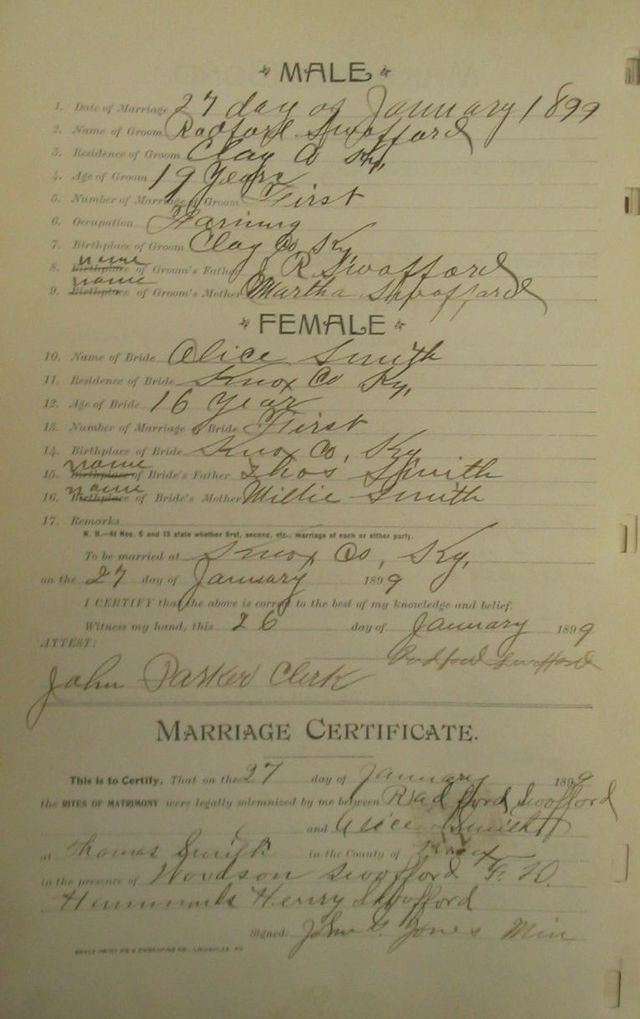 MALE
1. Date of Marriage 27 day of January 1899
2. Name of Groom Radford Swofford
3. Residence of Groom Clay Co Ky,
4. Age of Groom 19 Years
5. Number of Marriage of Groom First
6. Occupation Farming
7. Birthplace of Groom Clay Co, Ky
8. Birthplace name of Groom's Father J R Swofford
9. Birthplace name of Groom's Mother Martha Swofford
FEMALE
10. Name of Bride Alice Smith
11. Residence of Bride Knox Co Ky,
12. Age of Bride 16 Year
13. Number of Marriage of Bride First
14. Birthplace of Bride Knox Co, Ky
15. Birthplace name of Bride's Father Thos Smith
16. Birthplace name of Bride's Mother Millie Smith
17. Remarks
N. B.—At Nos. 5 and 13 state whether first, second, etc., marriage of each or either party.
To be married at Knox Co, Ky,
on the 27 day of January 1899
I CERTIFY that the above is correct to the best of my knowledge and belief.
Witness my hand, this 26 day of January 1899
ATTEST: Radford Swofford
John Parker Clerk
MARRIAGE CERTIFICATE.
This is to Certify, That on the 27 day of January 1899
the RITES OF MATRIMONY were legally solemnized by me between Radford Swofford
and Alice Smith
at Thomas Smith in the County of Knox
in the presence of Woodson Swofford
Henry Swofford
Signed, John G. Jones Min